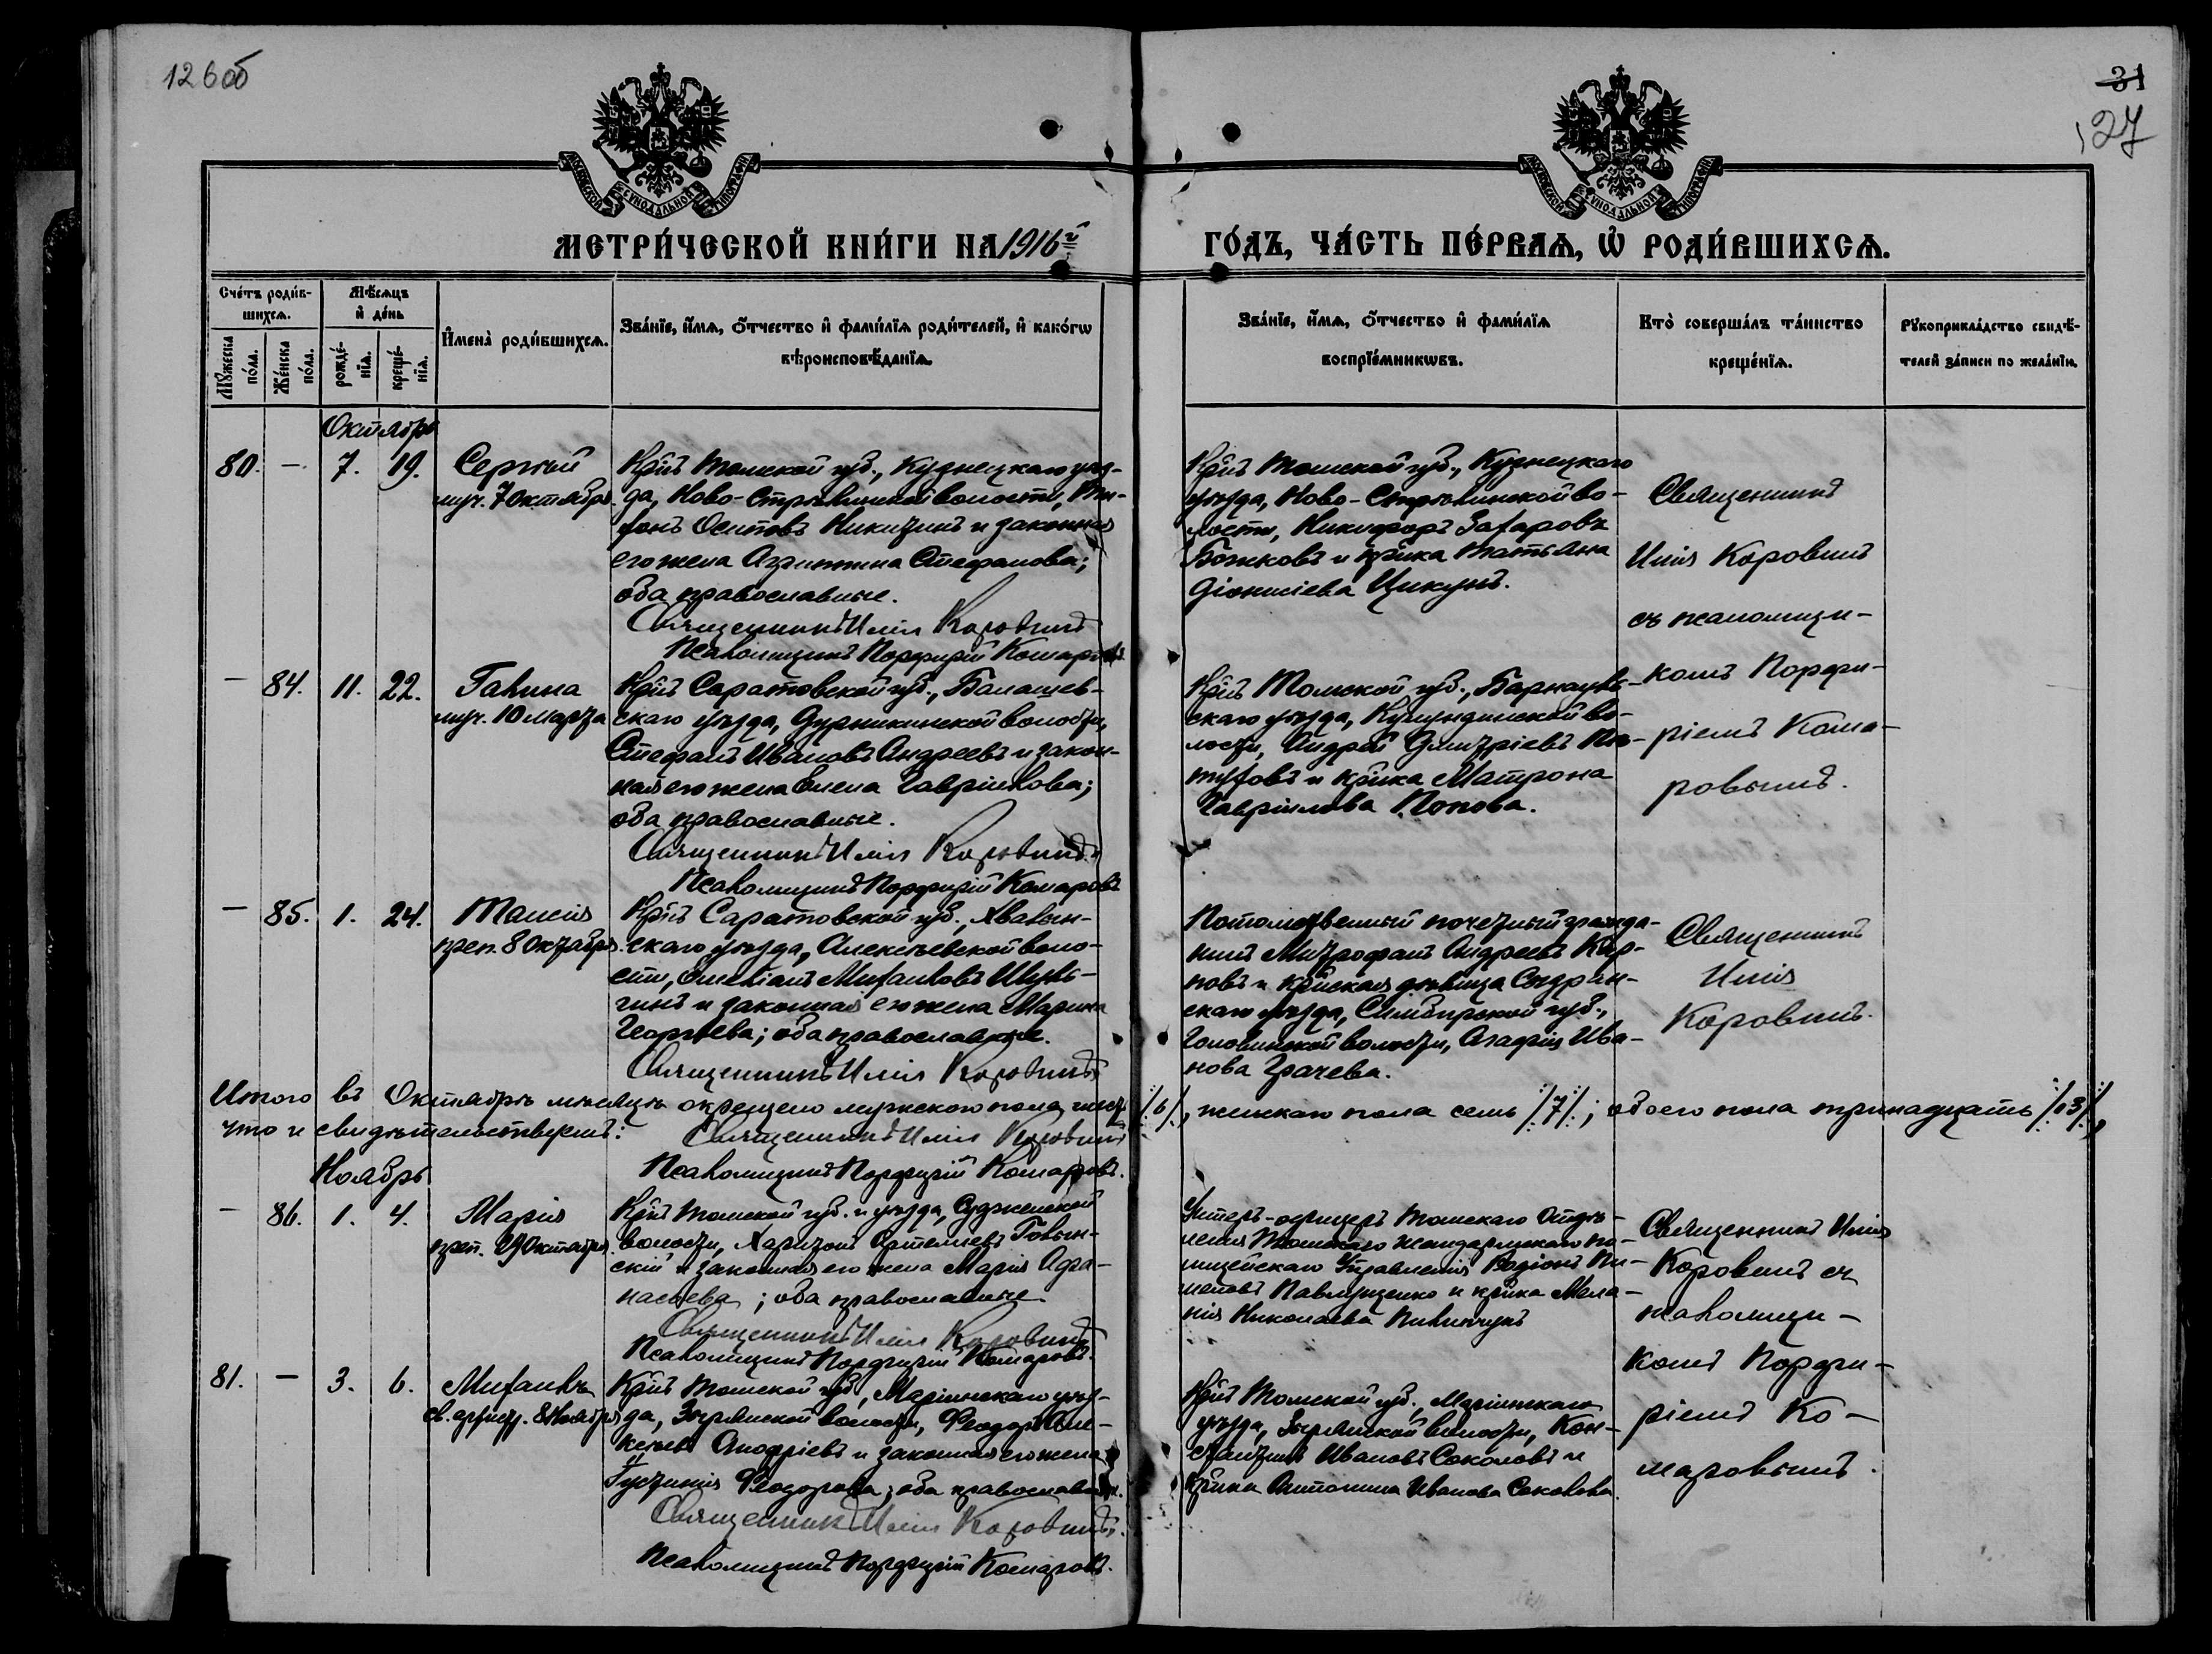 126 об
31
127
МОСКОВСКОЙ СУНОДАЛЬНОЙ ТИПОГРАФІИ
МОСКОВСКОЙ СУНОДАЛЬНОЙ ТИПОГРАФІИ
МЕТРИ́ЧЕСКОЙ КНИ́ГИ НА 1916й
ГО́ДЪ, ЧА́СТЬ ПЕ́РВАѦ, Ѽ РОДИ́ВШИХСѦ.
Сче́тъ роди́в-
шихсѧ.
Мꙋ́жеска по́ла.
Же́нска по́ла.
Мѣ́сѧцъ
и҆ де́нь
рожде́-
нїѧ.
креще́-
нїѧ.
И҆мена̀ роди́вшихсѧ.
Зва́нїе, и҆́мѧ, ѻ҆́тчество и҆ фами́лїѧ роди́телей, и҆ како́гѡ
вѣроисповѣ́данїѧ.
Зва́нїе, и҆́мѧ, ѻ҆́тчество и҆ фами́лїѧ
воспрїе́мникѡвъ.
Кто̀ соверша́лъ та́инство
креще́нїѧ.
Рꙋкоприкла́дство свидѣ́-
телей за́писи по жела́нїю.
Октябрь
80. — 7. 19.
Сергѣй
муч. 7 Октября.
Крнъ Томской губ., Кузнецкаго уѣз-
да, Ново-Стрѣлинской волости,
Осиповъ Никитинъ и законная
его жена Агриппина Стефанова;
оба православные.
Священникъ Илія Коровинъ
Псаломщикъ Порфирій Комаровъ
Крнъ Томской губ., Кузнецкаго
уѣзда, Ново-Стрѣлинской во-
лости, Никифоръ Захаровъ
Божковъ и крнка Татьяна
Діонисіева Цикунъ.
Священникъ
Илія Коровинъ
съ псаломщи-
комъ Порфи-
ріемъ Кома-
ровымъ.
— 84. 11. 22.
Галина
муч. 10 Марта
Крнъ Саратовской губ., Балашев-
скаго уѣзда, Дурникинской волости,
Стефанъ Ивановъ Андреевъ и закон-
ная его жена Елена Гавріилова;
оба православные.
Священникъ Илія Коровинъ
Псаломщикъ Порфирій Комаровъ
Крнъ Томской губ., Барнауль-
скаго уѣзда, Кулундинской во-
лости, Андрей Дмитріевъ Пас-
туховъ и крнка Матрона
Гавріилова Попова.
— 85. 1. 24.
Таисія
преп. 8 Октября.
Крнъ Саратовской губ., Хвалын-
скаго уѣзда, Алексѣевской воло-
сти, Емеліанъ Михаиловъ Шуль-
гинъ и законная его жена Марина
Георгіева; оба православные.
Священникъ Илія Коровинъ
Потомственный почетный гражда-
нинъ Митрофанъ Андреевъ Кар-
повъ и крнская дѣвица Сызран-
скаго уѣзда, Симбирской губ.,
Головинской волости, Агафія Ива-
нова Грачева.
Священникъ
Илія
Коровинъ.
Итого въ Октябрѣ мѣсяцѣ окрещено мужескаго пола шесть /6/, женскаго пола семь /7/; обоего пола тринадцать /13/,
что и свидѣтельствуемъ: Священникъ Илія Коровинъ
Псаломщикъ Порфирій Комаровъ.
Ноябрь
— 86. 1. 4.
Марія
преп. 29 Октября.
Крнъ Томской губ. и уѣзда, Судженской
волости, Харитонъ Артемиевъ Говын-
скій и законная его жена Марія Афа-
насьева; оба православные
Священникъ Илія Коровинъ
Псаломщикъ Порфирій Комаровъ.
Унтеръ-офицеръ Томскаго Отдѣ-
ленія Томскаго жандармскаго по-
лицейскаго Управленія Родіонъ Пи-
меновъ Павлущенко и крнка Мела-
нія Николаева Пилипчукъ
Священникъ Илія
Коровинъ съ
псаломщи-
комъ Порфи-
ріемъ Ко-
маровымъ.
81. — 3. 6.
Михаилъ
св. архистр. 8 Ноября
Крнъ Томской губ., Маріинскаго уѣз-
да, Зырянской волости, Феодоръ Але-
ксѣевъ Анофріевъ и законная его жена
Іустинія Феодорова; оба православн.
Священникъ Илія Коровинъ.
Псаломщикъ Порфирій Комаровъ.
Крнъ Томской губ., Маріинскаго
уѣзда, Зырянской волости, Кон-
стантинъ Ивановъ Соколовъ и
крнка Антонина Иванова Соколова.